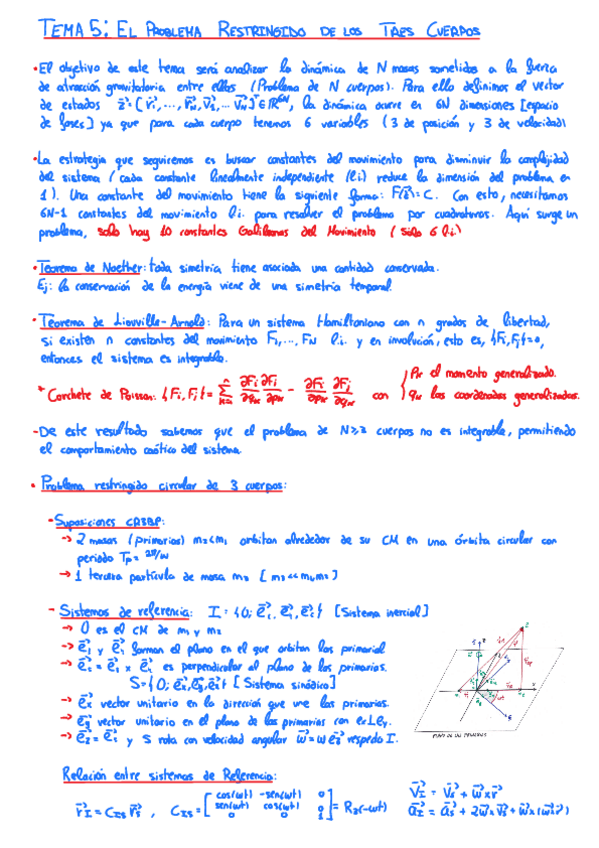 TEMA 5: EL PROBLEMA RESTRINGIDO DE LOS TRES CUERPOS
• El objetivo de este tema será analizar la dinámica de N masas sometidas a la fuerza
de atracción gravitatoria entre ellas (Problema de N cuerpos). Para ello definimos el vector
de estados z⃗ = [r⃗₁, ..., r⃗ₙ, v⃗₁, ... v⃗ₙ]ᵀ ∈ ℝ⁶ᴺ, la dinámica ocurre en 6N dimensiones [espacio
de fases] ya que para cada cuerpo tenemos 6 variables (3 de posición y 3 de velocidad)
• La estrategia que seguiremos es buscar constantes del movimiento para disminuir la complejidad
del sistema (cada constante linealmente independiente (l.i.) reduce la dimensión del problema en
1). Una constante del movimiento tiene la siguiente forma: F(z⃗) = C. Con esto, necesitamos
6N-1 constantes del movimiento l.i. para resolver el problema por cuadraturas. Aquí surge un
problema, solo hay 10 constantes Galileanas del Movimiento (Sólo 6 l.i.)
• Teorema de Noether: toda simetría tiene asociada una cantidad conservada.
Ej: la conservación de la energía viene de una simetría temporal.
• Teorema de Liouville-Arnold: Para un sistema Hamiltoniano con n grados de libertad,
si existen n constantes del movimiento F₁, ..., Fₙ l.i. y en involución, esto es, {Fi, Fj} = 0,
entonces el sistema es integrable.
* Corchete de Poisson: {Fi, Fj} = Σ ∂Fi/∂qₖ ∂Fj/∂pₖ - ∂Fi/∂pₖ ∂Fj/∂qₖ con { pₖ el momento generalizado.
qₖ las coordenadas generalizadas.
- De este resultado sabemos que el problema de N≥3 cuerpos no es integrable, permitiendo
el comportamiento caótico del sistema
• Problema restringido circular de 3 cuerpos:
- Suposiciones CR3BP:
→ 2 masas (primarios) m₂<m₁ orbitan alrededor de su CM en una órbita circular con
periodo Tp = 2π/w
→ 1 tercera partícula de masa m₃ [m₃ << m₁, m₂]
- Sistemas de referencia: I = {O; e⃗₁, e⃗₂, e⃗₃} [Sistema inercial]
→ O es el CM de m₁ y m₂
→ y forman el plano en el que orbitan los primarios
→ es perpendicular al plano de los primarios.
S = {O; e⃗x, e⃗y, e⃗z} [Sistema sinódico]
→ e⃗x vector unitario en la dirección que une los primarios.
→ e⃗y vector unitario en el plano de los primarios con ex⊥ey.
→ y S rota con velocidad angular w⃗ = w e⃗z respecto I.
PLANO DE LOS PRIMARIOS
Relación entre sistemas de Referencia:
r⃗I = CIS r⃗S , CIS = [cos(wt) -sen(wt) 0 v⃗I = v⃗S + w⃗ x r⃗
sen(wt) cos(wt) 0
0 0 1] = R₃(-wt) a⃗I = a⃗S + 2w⃗ x v⃗S + w⃗ x (w⃗ x r⃗)